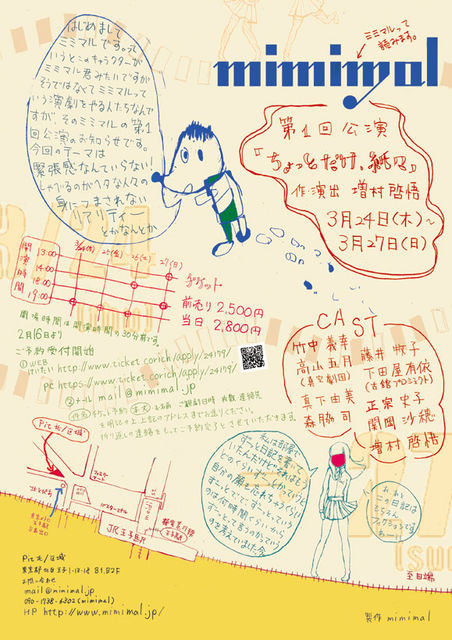 mimimal
ミミマルって
読みます。
はじめまして
ミミマルです。って
いうとこのキャラクターが
ミミマル君みたいですが
そうではなくてミミマルって
いう演劇をやる人たちなんで
すが、そのミミマルの第1
回公演のお知らせです。
今回のテーマは
緊張感なんていらない!
身につまされない
リアリティー
とかなんとか
第1回公演
「ちょっとだけ、紙ひ」
作・演出 増村啓悟
3月24日(木)〜
3月27日(日)
開演時間
3/24(木) 25(金) 26(土) 27(日)
13:00
14:00
18:00
19:00
チケット
前売り 2,500円
当日 2,800円
開場時間は開演時間の30分前です。
2月16日より
ご予約受付開始
①WEB
けいたい http://www.ticket.corich/apply/24179/
pc https://www.ticket.corich/apply/24179/
②メール mail@mimimal.jp
件名 チケット予約 本文 お名前 ご観劇日時 枚数 連絡先
を明記の上上記のアドレスまでお送りください。
折り返しの連絡をしてご予約完了とさせていただきます。
CAST
竹中義幸
高山五月
(真空劇団)
真下由美
森脇司
藤井牧子
下田屋有依
(古館プロジェクト)
正宗史子
関岡沙織
増村啓悟
私は部屋で
ずっと日記を書いて
あ、あ、
この日記は
もちろん
フィクションです
Pit北/区域
ファミリーマート
バスターミナル
JR王子駅
都電荒川線
王子駅前
至田端
Pit北/区域
東京都北区王子1-13-18 B1.B2F
お問い合わせ
mail@mimimal.jp
090-1738-6302(mimimal)
HP http://www.mimimal.jp/
製作 mimimal